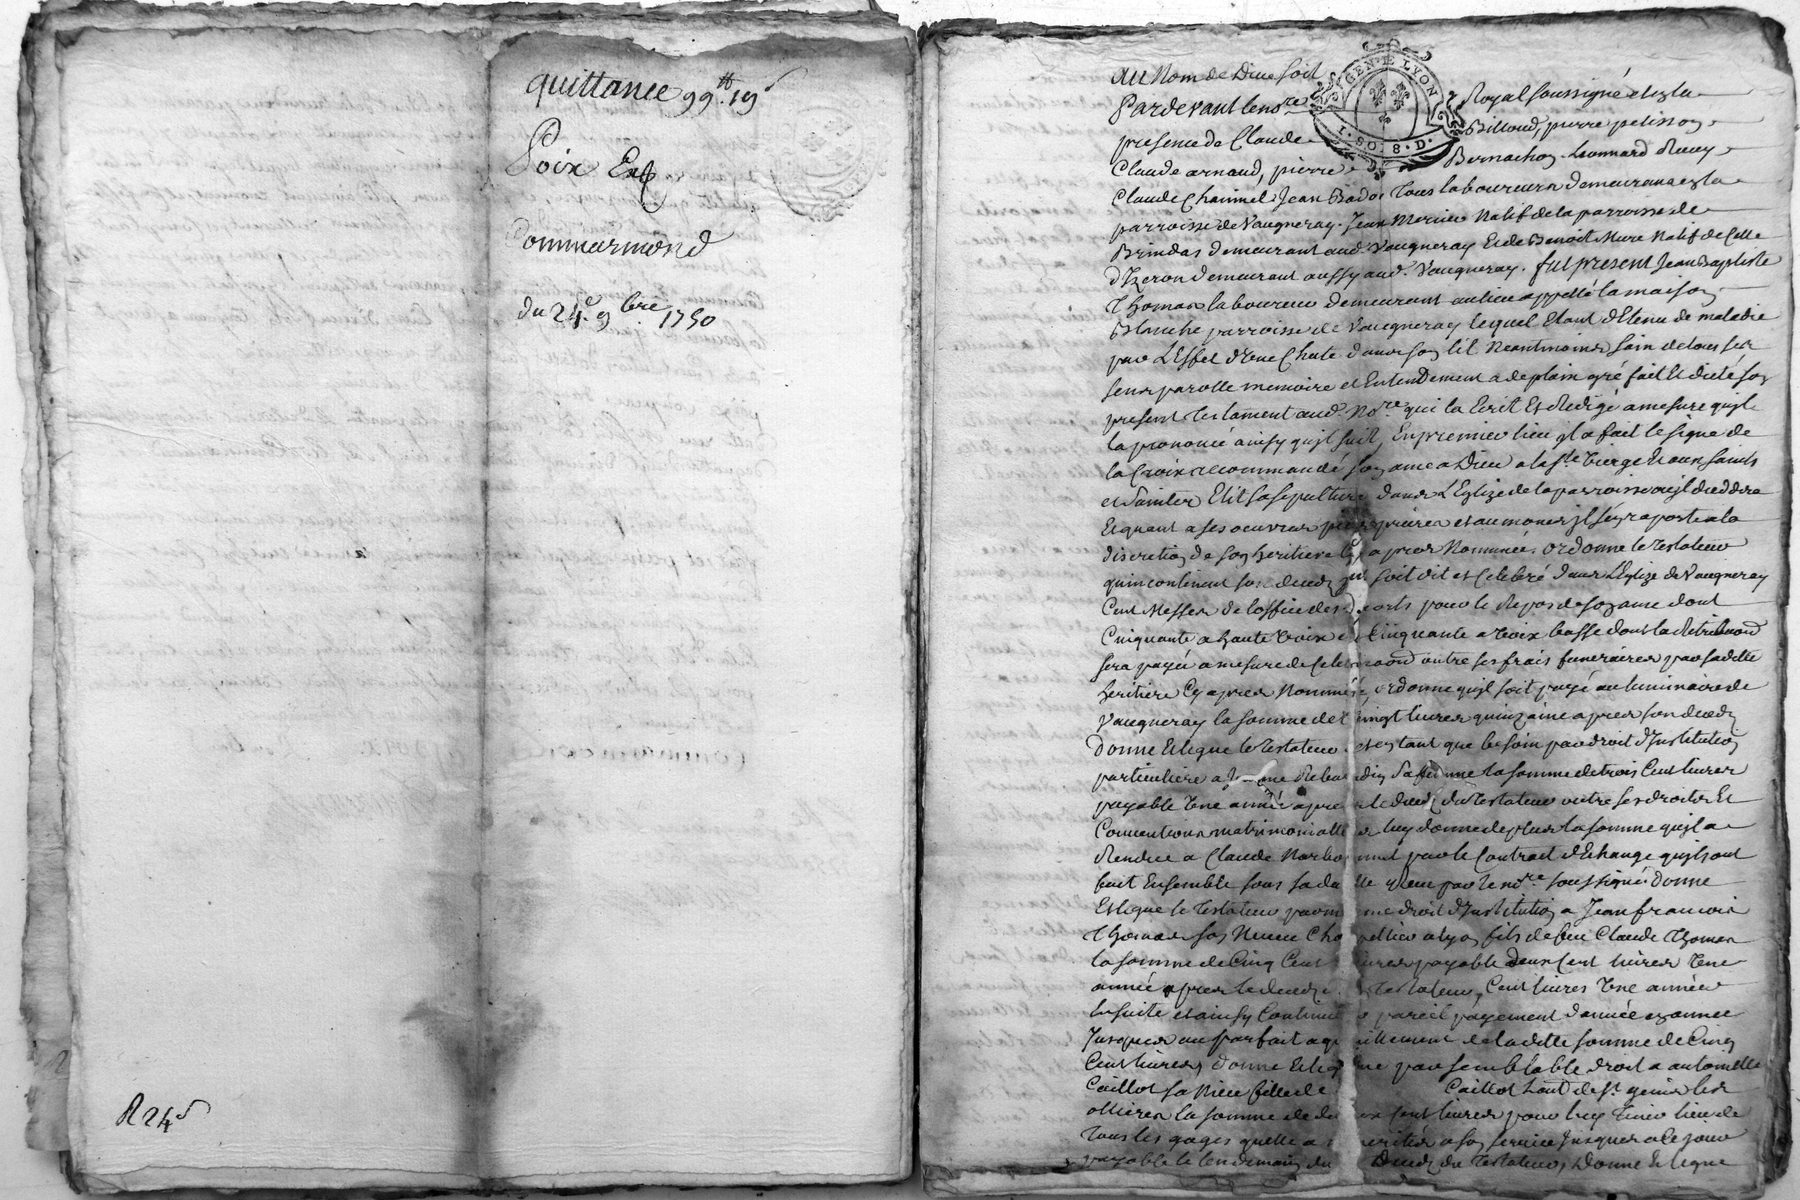 quittance 99 ₶ 19 s
Poix Et
Commarmond
du 24e 9bre 1750
R 24 s
au Nom de Dieu soit
GEN. DE LYON
I. SO. 8. D.
Pardevant le no.re Royal soussigné et en la
presence de Claude Billoud, pierre pelisson
Claude arnaud, pierre Bernachon Leonnard
Claude Chainnel Jean Tous laboureurs demeurans en la
parroisse de Vaugneray. Jean Mercier Natif de la parroisse de
Brindas demeurant aud. Vaugneray Et de Benoit Mure Natif de Celle
d'Izeron demeurant aussy aud. Vaugneray. fut present Jean Baptiste
Thomas laboureur demeurant au lieu appellé la maison
Blanche parroisse de Vaugneray lequel Etant detenu de maladie
par L'Effet d'une Chute dans son lit Neantmoins sain de tous ses
sens parolle memoire et Entendement a de plain gré fait Et dicté son
present testament aud. No.re qui la Ecrit Et Redigé a mesure qu'il
la prononcé ainsy qu'il suit, En premier lieu il a fait le signe de
la Croix recommandé son ame a Dieu a la Ste Vierge Et aux saints
et saintes Elit sa sepulture dans L'Eglize de la parroisse ou il
Et quant a ses oeuvres prieres et aumones il s'en raporte a la
discretion de son heritiere Cy apres Nommée. ordonne le testateur
qu'incontinent son deced soit dit et Celebré dans L'Eglize de Vaugneray
Cent Messes de l'office des morts pour le Repos de son ame dont
Cinquante a haute voix et Cinquante a voix basse dont la
sera payée a mesure de outre ses frais funeraires par sa ditte
heritiere Cy apres Nommée, ordonne qu'il soit payé au luminaire de
Vaugneray la somme de vingt livres quinzaine apres son deced,
donne Et legue le testateur et en tant que besoin par droit d'Institution
particuliere a sa femme la somme de trois Cent livres
payable Une année apres le deced du testateur outre ses droits Et
Conventions matrimonialles luy donne de plus la somme qu'il a
Rendue a Claude par le Contract d'Echange qu'ils ont
fait Ensemble sous sa datte Reçu par le no.re soussigné. donne
Et legue le testateur par même droit d'Institution a Jean francois
Thomas son Neveu a lyon fils de feu Claude Thomas
la somme de Cinq Cent livres payable deux Cent livres Une
année apres le deced du testateur, Cent livres Une année
Ensuite et ainsy Continuer pareil payement d'année en année
Jusques au parfait aquittement de la ditte somme de Cinq
Cent livres, donne Et legue par semblable droit a antoinette
Caillot sa Niece fille de Caillot de St. genis les
ollieres la somme de deux Cent livres pour luy Tenir lieu de
Tous les gages quelle a a son service Jusques a ce jour
payable le lendemain du Deced du testateur, Donne Et legue